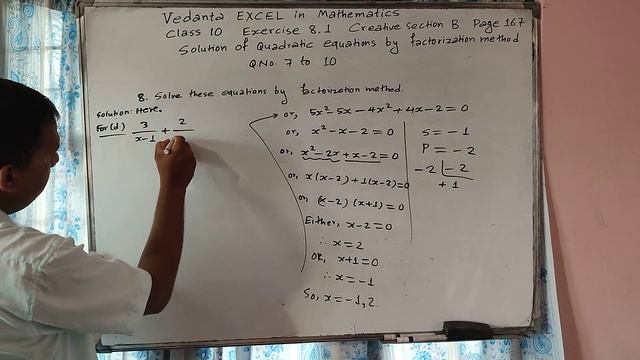 Vedanta EXCEL in Mathematics
Class 10 Exercise 8.1 Creative section B Page 167
Solution of Quadratic equations by factorization method
Q.No. 7 to 10
8. Solve these equations by factorization method.
Solution: Here,
For(d) 3/x-1 + 2/
or, 5x²-5x-4x²+4x-2=0
or, x²-x-2=0
or, x²-2x+x-2=0
or, x(x-2)+1(x-2)=0
or, (x-2)(x+1)=0
Either, x-2=0
∴ x=2
OR, x+1=0
∴ x=-1
So, x=-1,2.
S=-1
P=-2
-2 | -2
+1